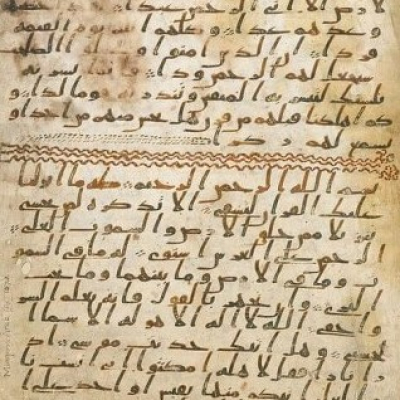 لارض الا اتى الرحمن عبدا
وعدهم عدا وكلهم اتيه يوم القيمة
فردا ان الذين امنوا وعملوا الصلحت
سيجعل لهم الرحمن ودا فانما يسرنه
بلسنك لتبشر به المتقين وتنذر به قوما لدا و
كم اهلكنا قبلهم من قرن هل تحس منهم من احد او
تسمع لهم ركزا
بسم الله الرحمن الرحيم طه ما انزلنا
عليك القران لتشقى الا تذكرة لمن يخشى
تنزيلا ممن خلق الارض والسموت العلى
الرحمن على العرش استوى له ما في السمو
ت وما في الارض وما بينهما وما تحت
الثرى وان تجهر بالقول فانه يعلم السر
واخفى الله لا اله الا هو له الاسما
الحسنى وهل اتيك حديث موسى اذ
را نارا فقال لاهله امكثوا اني انست نا
را لعلي اتيكم منها بقبس او اجد على ا